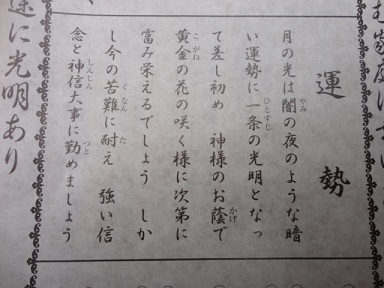 運勢
やみ
月の光は闇の夜のような暗
ひとすじ
い運勢に一条の光明となっ
かげ
て差し初め 神様のお蔭で
こがね
黄金の花の咲く様に次第に
富み栄えるでしょう しか
くなん た
し今の苦難に耐え 強い信
しんじん つと
念と神信大事に勤めましょう
途に光明あり